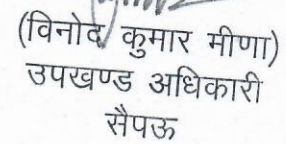 (विनोद कुमार मीणा)
उपखण्ड अधिकारी
सैपऊ